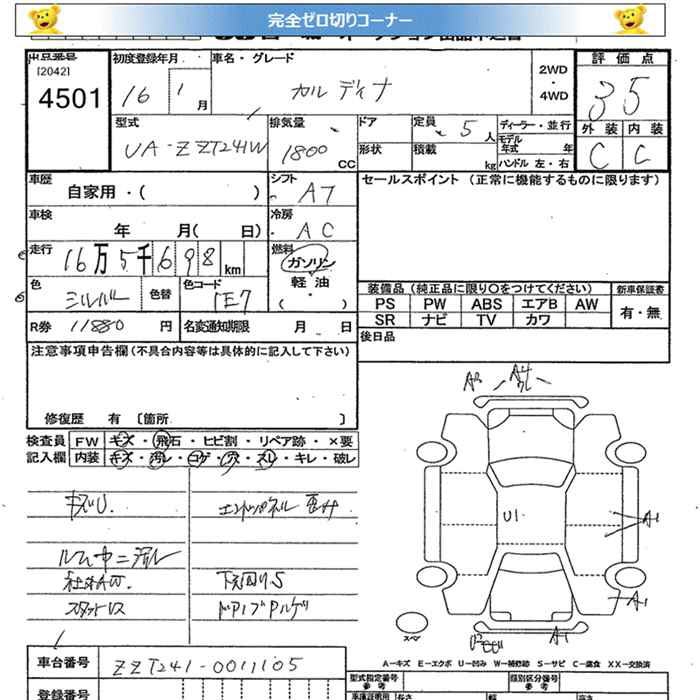 完全ゼロ切りコーナー
出品番号
[2042]
4501
初度登録年月
16 1 月
車名・グレード
カルディナ
2WD
・
4WD
評価点
3 5
外装 内装
C C
型式
UA-ZZT241W
排気量
1800 CC
ドア
定員
5 人
ディーラー・並行
モデル年式 年
形状
積載 kg
ハンドル 左・右
車歴
自家用・( )
シフト
A7
セールスポイント (正常に機能するものに限ります)
車検
年 月( 日)
冷房
AC
走行
16万5千698 km
燃料
ガソリン
軽油
・
( )
色
シルバー
色替
色コード
1E7
装備品 (純正品に限り〇をつけてください)
新車保証書
PS PW ABS エアB AW
SR ナビ TV カワ
有・無
R券 11880 円
名変通知期限 月 日
後日品
注意事項申告欄 (不具合内容等は具体的に記入して下さい)
修復歴 有 〔箇所 〕
検査員 FW キズ・飛石・ヒビ割・リペア跡・×要
記入欄 内装 キズ・汚レ・コゲ・穴・スレ・キレ・破レ
キズU.
エンドパネル 歪み
ルーム中ニ汚レ
下回りS
スタットレス
A4
U1
A1
A1
A1
スペア
A-キズ E-エクボ U-凹み W-補修跡 S-サビ C-腐食 XX-交換済
車台番号
ZZT241-0011105
型式指定番号
参考
類別区分番号
参考
登録番号
車庫証明用
長さ
幅
高さ